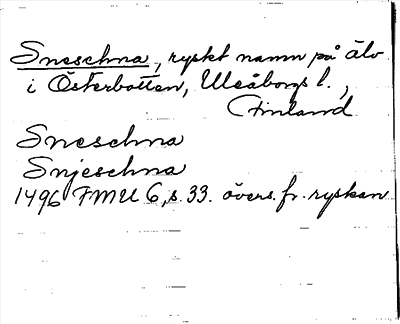 Sneschna, ryskt namn på älv
i Österbotten, Uleåborgs l.,
Finland
Sneschna
Snjeschna
1496 FMU 6, s. 33. övers. fr. ryskan